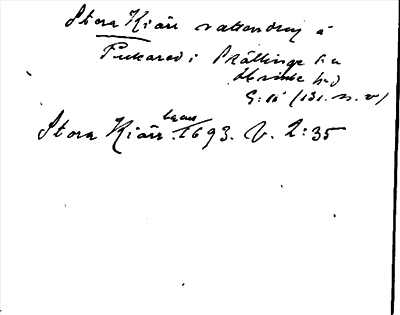 Stora Kiärr vattendrag å
Puckared i Prällinge s:n
Himle h:d
G: 16 (131. n. v)
Stora Kiärr 1693. V. 2:35